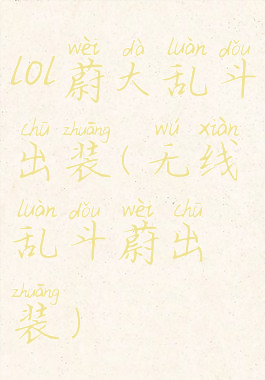 wèi dà luàn dǒu
lol 蔚大乱斗
chū zhuāng wú xiàn
出装(无线
luàn dǒu wèi chū
乱斗蔚出
zhuāng
装)